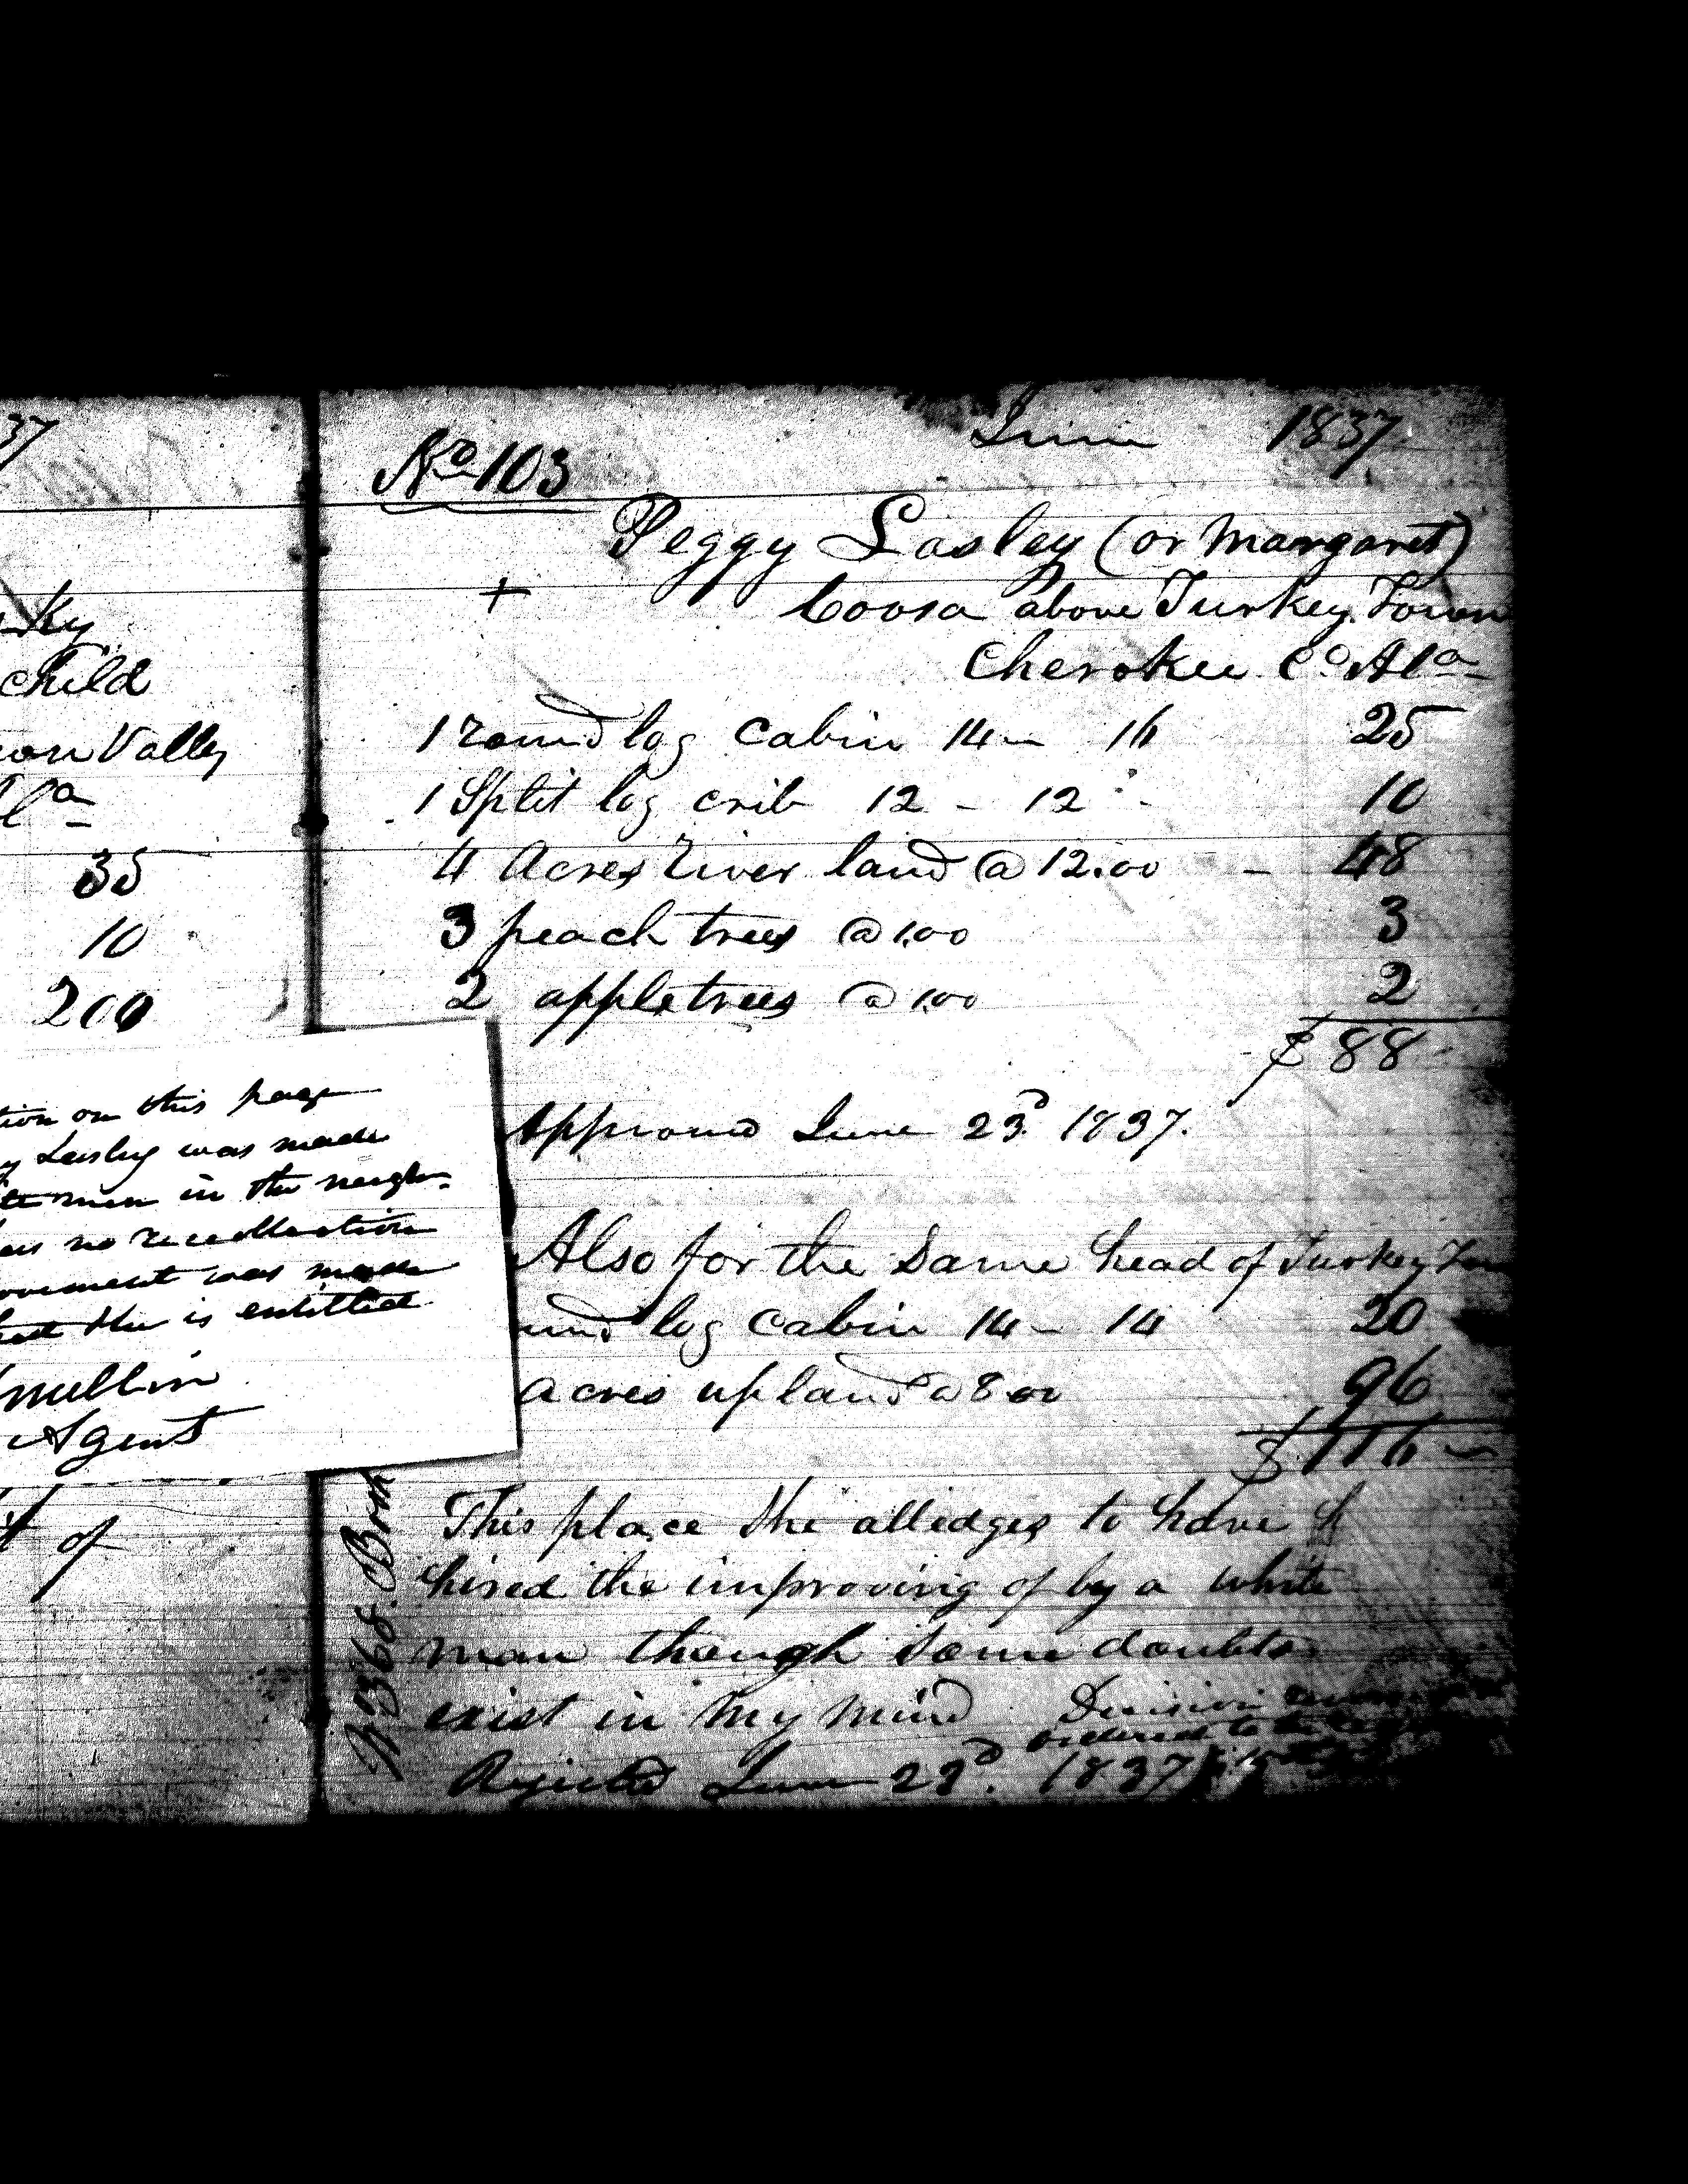 37
Ky
child
Valley
la
35
10
200
tion on this page
Lasley was made
men in the neigh-
no recollection
was made
she is entitled
Agent
of
No 103
June 1837
Peggy Lasley (or Margaret)
+
Coosa above Turkey Town
Cherokee Co Ala
1 round log cabin 14 - 16 25
1 Split log crib 12 - 12 - 10
4 Acres River land @ 12.00 - 48
3 peach trees @ 1.00 3
2 apple trees @ 1.00 2
$ 88
Approved June 23d 1837.
Also for the Same head of Turkey
und log cabin 14 - 14 20
acres upland @ 8 00 96
$ 116
This place She alledges to have
hired the improving of by a white
man though some doubts
exist in my mind
Decision
ordered to
Rejected June 23d. 1837